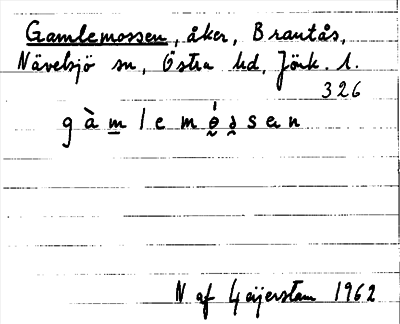 Gamlemossen, åker, Brantås,
Nävelsjö sn, Östra hd, Jönk. l.
326
gàmlemósen
N af Geijerstam 1962